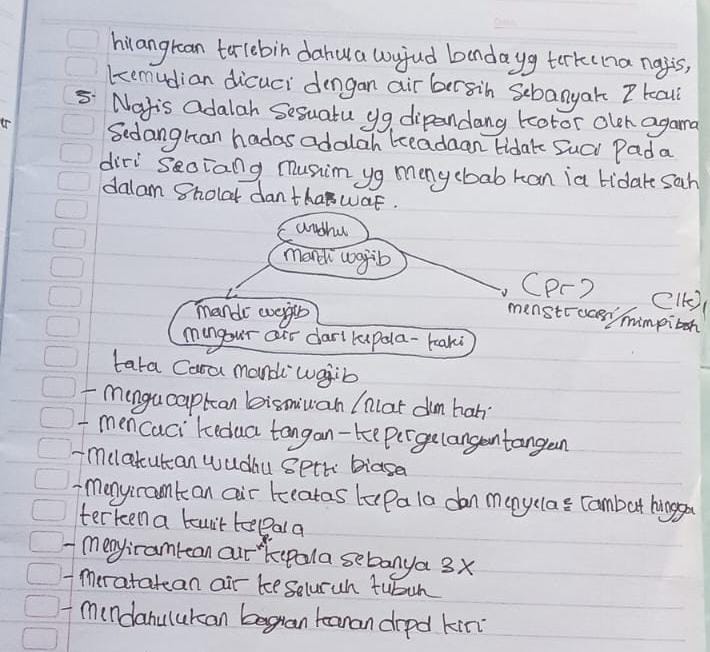 hilangkan terlebih dahulu wujud benda yg terkena najis,
kemudian dicuci dengan air bersih sebanyak 7 kali
5. Najis adalah sesuatu yg dipandang kotor oleh agama
sedangkan hadas adalah keadaan tidak suci pada
diri seorang muslim yg menyebabkan ia tidak sah
dalam sholat dan thawaf.
wudhu
mandi wajib
(pr) (lk)
menstruasi/mimpi bah
mandi wajib
mengguyur air dari kepala - kaki
tata cara mandi wajib
- mengucapkan bismillah /niat dlm hati
- mencuci kedua tangan - ke pergelangan tangan
- melakukan wudhu spt biasa
- menyiramkan air keatas kepala dan menyelas rambut hingga
terkena kulit kepala
- menyiramkan air kepala sebanya 3x
- meratakan air ke seluruh tubuh
- mendahulukan bagian kanan drpd kiri